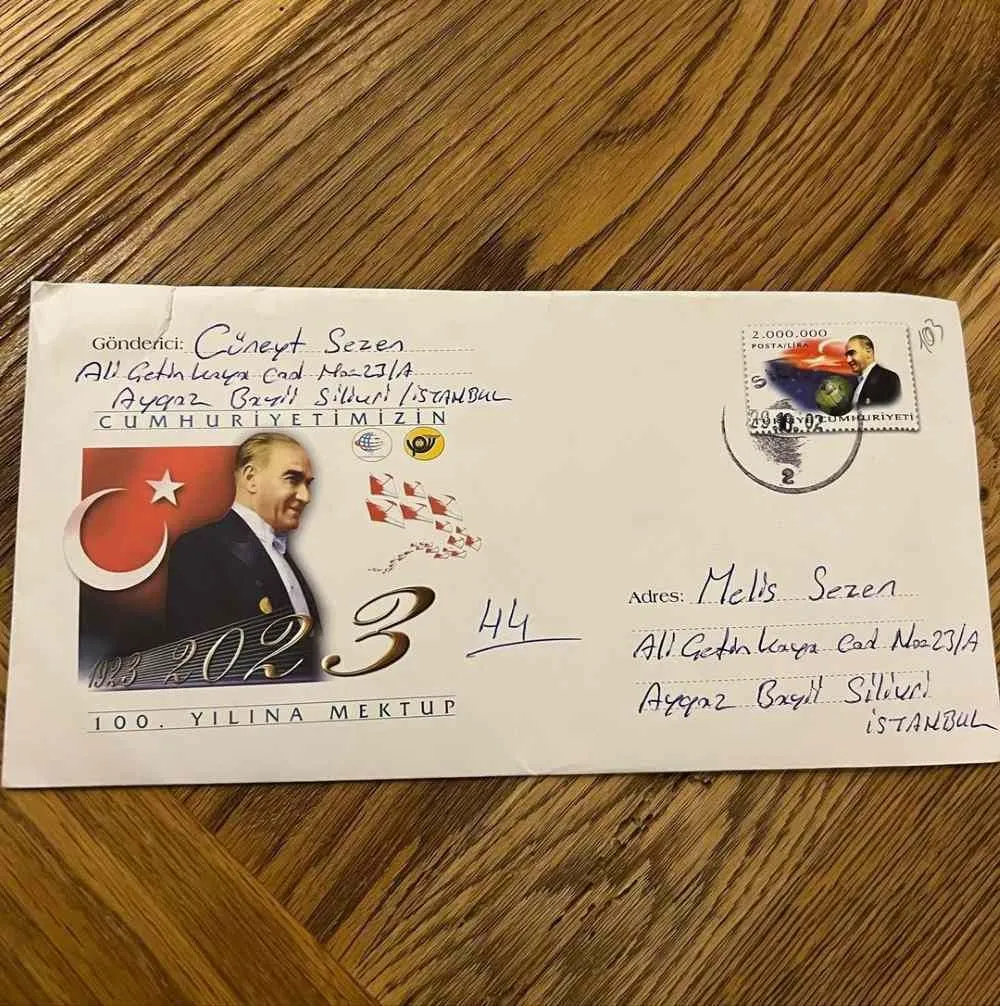 Gönderici: Cüneyt Sezen
Ali Çetin kaya Cad No=23/A
Aygaz Bayii Silivri / İSTANBUL
CUMHURİYETİMİZİN
1923 2023
100. YILINA MEKTUP
44
2.000.000
POSTA/LİRA
CUMHURİYETİ
29.10.02
2
103
Adres: Melis Sezen
Ali Çetin kaya Cad No=23/A
Aygaz Bayii Silivri
İSTANBUL